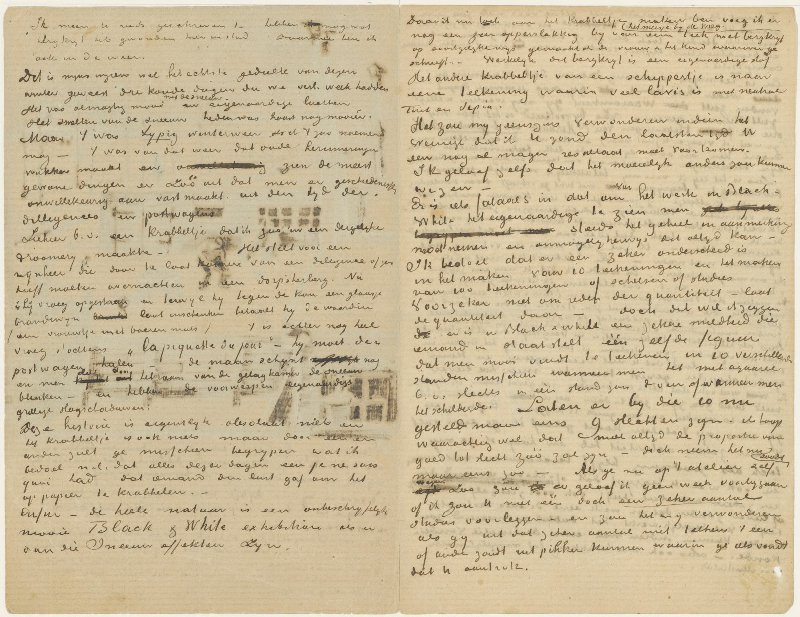 Ik meen U reeds geschreven te hebben
ook in de weer.
Dit is mijns inziens wel het echtste gedeelte van dezen
winter geweest die koude dagen die we verl. week hadden
Het was almagtig mooi met de sneeuw en eigenaardige luchten.
Het smelten van de sneeuw heden was haast nog mooier.
Maar 't was typig winterweer als ik 't zoo noemen
mag — 't was van dat weer dat oude herinneringen
wakker maakt en zien de meest
gewone dingen er zóó uit dat men er geschiedenissen
onwillekeurig aan vast maakt uit den tijd der
diligences en postwagens
Ziehier b.v. een krabbeltje dat ik zoo in een dergelijke
droomerij maakte. — Het stelt voor een
mijnheer die door te laat komen van een diligence of zoo
heeft moeten overnachten in een dorpsherberg. Nu
is hij vroeg opgestaan en terwijl hij tegen de kou een glaasje
brandewijn laat inschenken betaalt hij de waardin
(een vrouwtje met boeren muts) 't is echter nog heel
vroeg 's ochtens "la piquette du jour" — hij moet den
postwagen halen — de maan schijnt nog
en men ziet het raam van de gelagkamer de sneeuw
blinken — en hebben de voorwerpen eigenaardige
grillige slagschaduwen.
Deze historie is eigentlijk absoluut niets en
het krabbeltje is ook niets maar door een en
ander zult ge misschien begrijpen wat ik
bedoel n.l. dat alles dezer dagen een je ne sais
quoi had dat iemand den lust gaf om het
op papier te krabbelen. —
Enfin — de heele natuur is een onbeschrijfelijk
mooie Black & White exhibition als er
van die sneeuw effekten zijn.
Daar ik nu toch aan het krabbeltjes maken ben voeg ik er
nog een zeer oppervlakkig bij van een teek. met bergkrijt
het meisje bij de wieg
op soortgelijke wijs gemaakt als de vrouw & het kind waarvan ge
schreeft. — Werkelijk dat bergkrijt is een eigenaardige stof
Het andere krabbeltje van een schippertje is naar
eene teekening waarin veel lavis is met neutrale
tint en sepia.
Het zou mij geenszins verwonderen indien het
weinige dat ik U zond den laatsten tijd U
een nog al mager resultaat moet voorkomen.
Ik geloof zelfs dat het moeielijk anders zou kunnen
wezen —
Er is iets fataals in dat om van het werk in Black-
White het eigenaardige te zien men
steeds het geheel in aanmerking
moet nemen en onmogelijkerwijs dit altijd kan —
Ik bedoel dat er een zeker onderscheid is
in het maken van 10 teekeningen en het maken
van 100 teekeningen of schetsen of studies
Voorzeker niet om reden der quantiteit — laat
de quantiteit daar — doch dit wil ik zeggen
er is in Black & White een zekere mildheid die
iemand in staat stelt één zelfde figuur
dat men mooi vindt te teekenen in 10 verschillende
standen misschien wanneer men het met aquarel
b.v. slechts in één stand zou doen of wanneer men
het schilderde. Laten er bij die 10 nu
gesteld maar eens 9 slechten zijn. ik hoop
waarachtig wel dat niet altijd de proportie van
goed tot slecht zoo zal zijn doch neem het nu
maar eens zoo. — Als ge nu op 't atelier zelf
geloof ik geen week voorbijgaan
of ik zou U niet één doch een zeker aantal
studies voorleggen — en zou het mij verwonderen
als gij uit dat zeker aantal niet telkens 't een
of ander zoudt uitpikken kunnen waarin ge iets vondt
dat U aantrok.